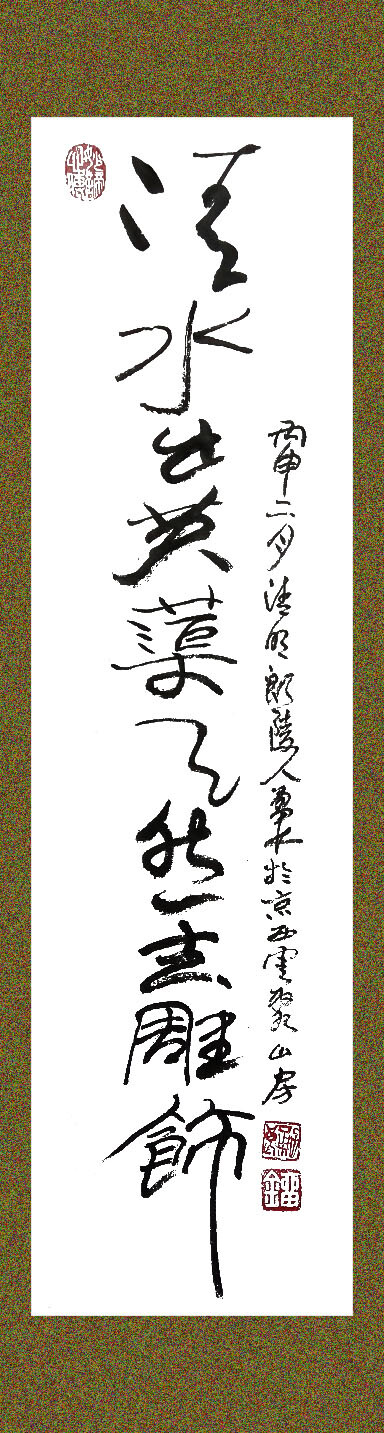 清水出芙蕖天然去雕飾
丙申二月清明朗陵人水於京西雲聚山房